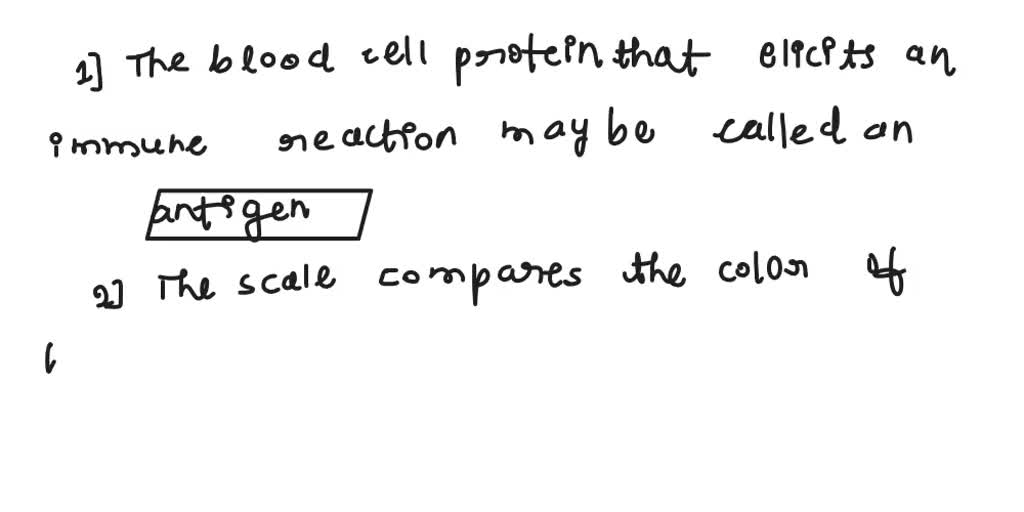 1] The blood cell protein that elicits an
immune reaction may be called an
antigen
2] The scale compares the color of